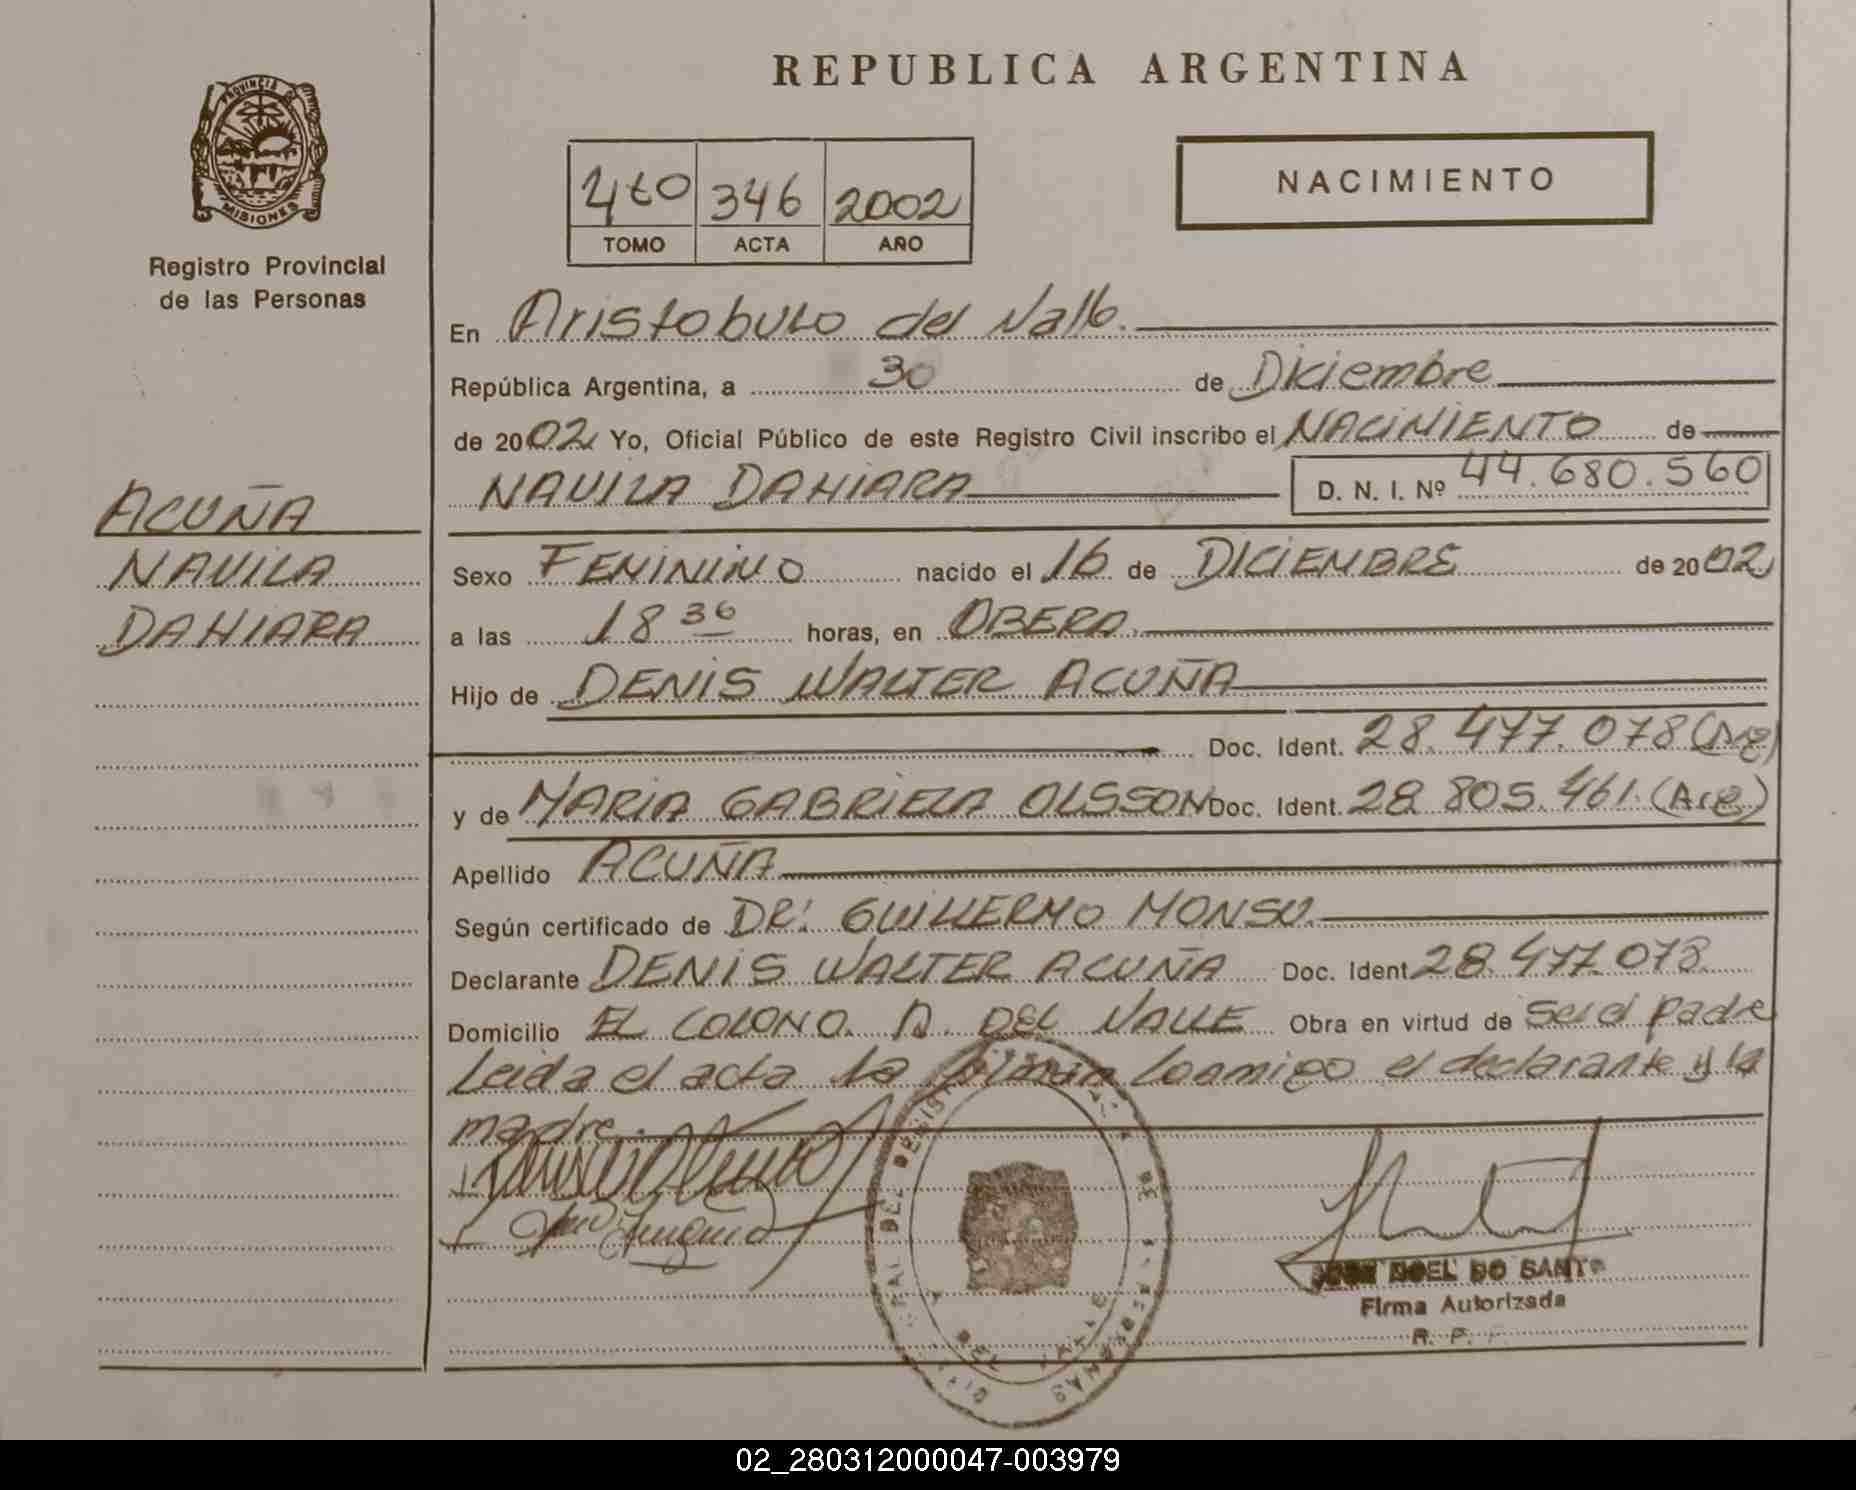 REPUBLICA ARGENTINA
PROVINCIA DE
MISIONES
Registro Provincial
de las Personas
4to 346 2002
TOMO ACTA AÑO
NACIMIENTO
En Aristobulo del Valle.
República Argentina, a 30 de Diciembre
de 2002 Yo, Oficial Público de este Registro Civil inscribo el NACIMIENTO de
NAVILA DAHIARA D. N. I. Nº 44.680.560
ACUÑA
NAVILA
DAHIARA
Sexo FENININO nacido el 16 de DICIEMBRE de 2002
a las 18 36 horas, en OBERA.
Hijo de DENIS WALTER ACUÑA
Doc. Ident. 28.477.078 (Arg)
y de MARIA GABRIELA OLSSON Doc. Ident. 28.805.461. (Arg)
Apellido ACUÑA
Según certificado de DR: GUILLERMO MONSU.
Declarante DENIS WALTER ACUÑA Doc. Ident 28.477.078.
Domicilio EL COLONO. A. DEL VALLE Obra en virtud de Ser el padre
Leida el acta la firman Conmigo el declarante y la
madre.
DOEL DO SANTO
Firma Autorizada
R. P.
02_280312000047-003979